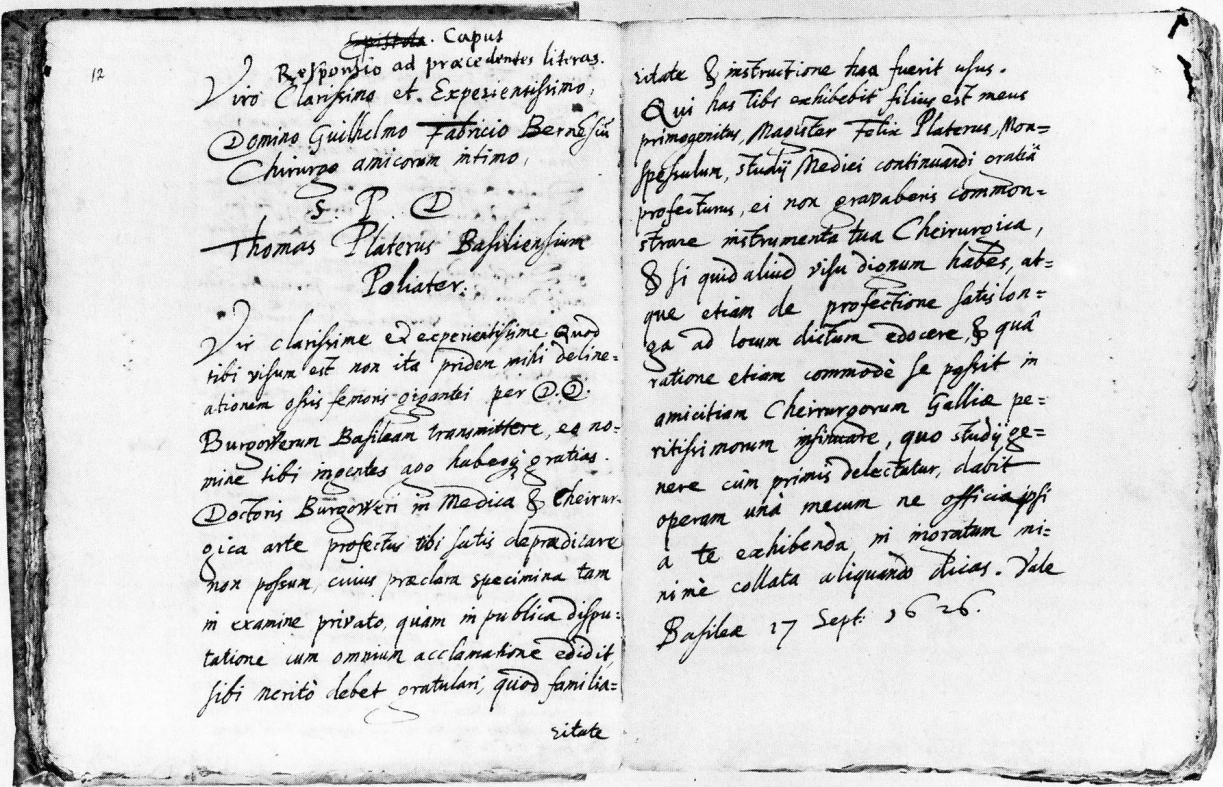 Epistola. Caput
12
Responsio ad præcedentes literas.
Viro Clarissimo et Experientissimo,
Domino Guilhelmo Fabricio Bernesiũ
Chirurgo amicorum intimo,
S. P. D
Thomas Platerus Basiliensium
Poliater.
Vir clarissime et experientissime. Quod
tibi visum est non ita pridem mihi deline=
ationem ossis femoris gigantei per D. D.
Burgowerum Basileam transmittere, eo no=
mine tibi ingentes ago habeoq̃ gratias.
Doctoris Burgoweri in Medica & Cheirur-
gica arte profectus tibi satis deprædicare
non possum, cuius præclara specimina tam
in examine privato, quàm in publica dispu-
tatione cum omnium acclamatione edidit,
sibi meritò debet gratulari, quòd familia=
ritate
ritate & instructione tua fuerit usus.
Qui has tibi exhibebit filius est meus
primogenitus, Magister Felix Platerus, Mon=
spessulum, studij Medici continuandi gratiâ
profecturus, ei non gravaberis common=
strare instrumenta tua Cheirurgica,
& si quid aliud visu dignum habes, at=
que etiam de profectione satis lon=
ga ad locum dictum edocere, & quâ
ratione etiam commodè se possit in
amicitiam Cheirurgorum Galliæ pe=
ritissimorum insinuare, quo studij ge=
nere cùm primis delectatur, dabit
operam unà mecum ne officia ipsi
à te exhibenda, in ingratum mi-
nimè collata aliquando dicas. Vale
Basileæ 17 Sept. 1626.